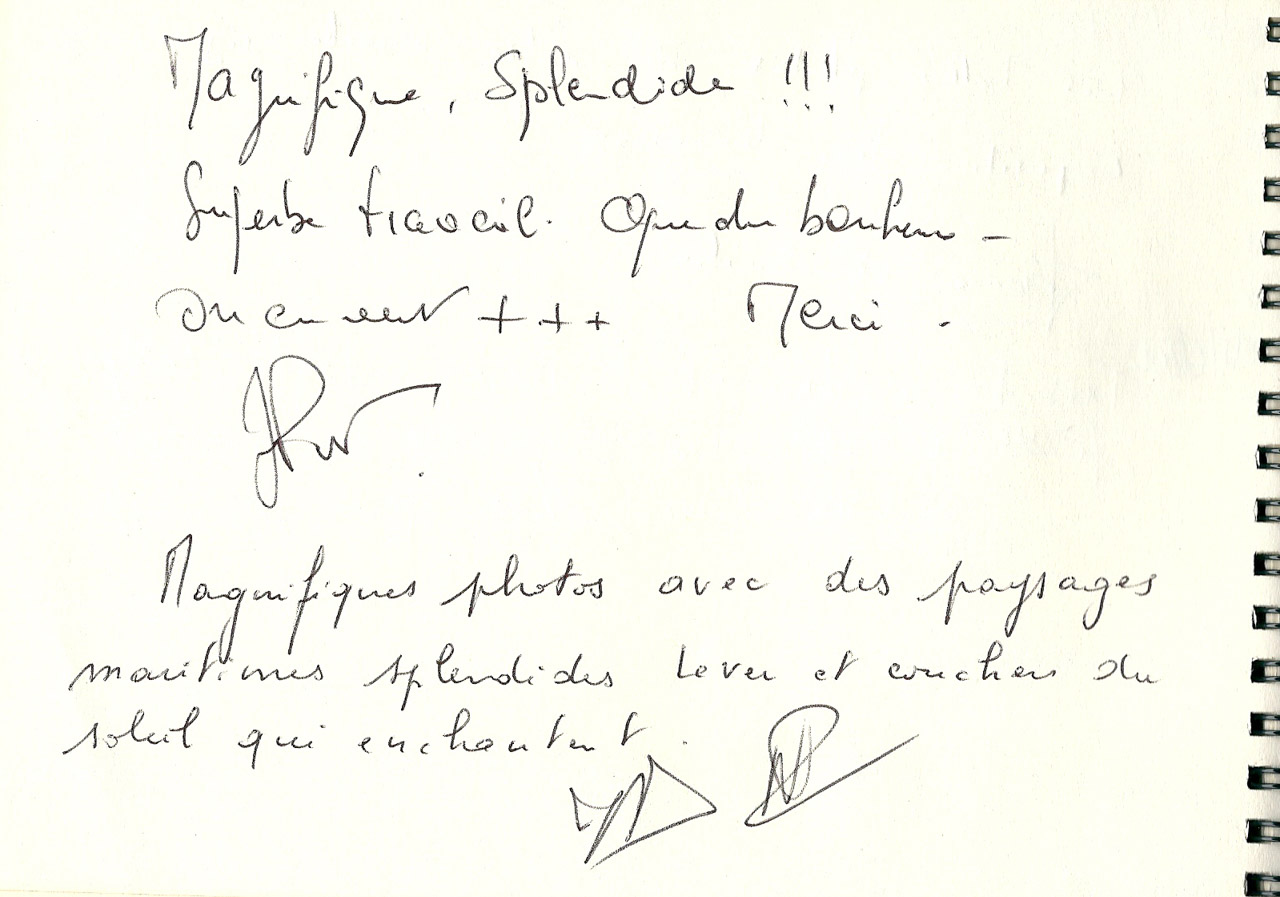 Magnifique, Splendide !!!
Superbe travail. Que du bonheur -
on en veut +++ Merci.
Magnifiques photos avec des paysages
maritimes splendides Lever et coucher du
soleil qui enchantent.